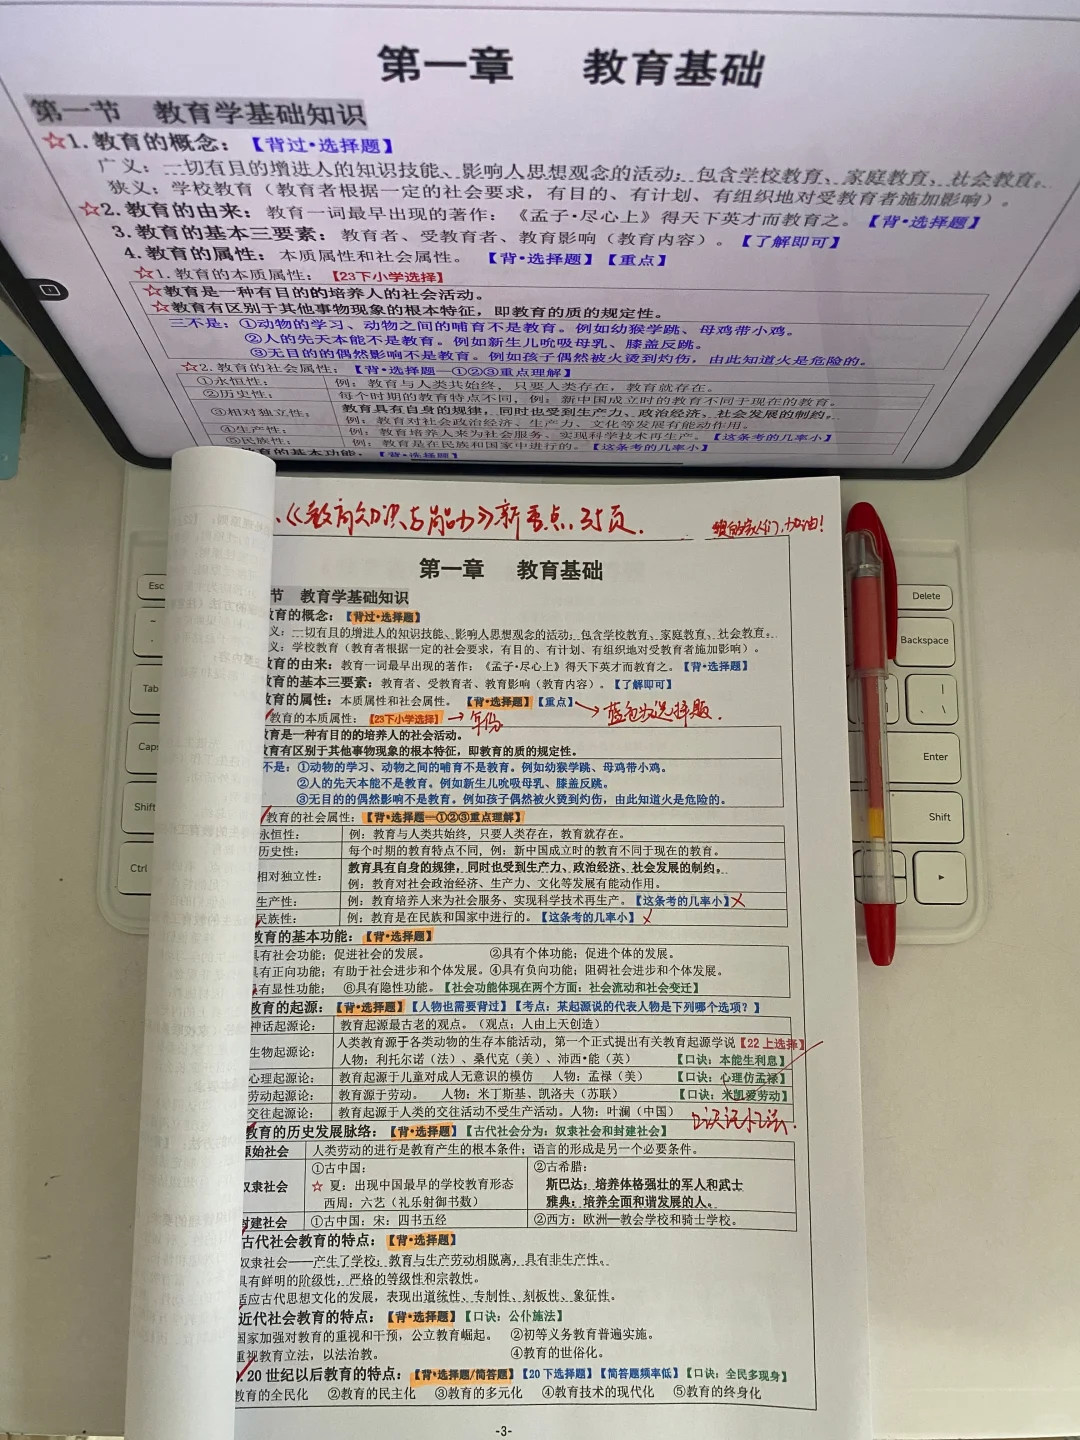 第一章 教育基础
第一节 教育学基础知识
☆1.教育的概念：【背过·选择题】
广义：一切有目的增进人的知识技能、影响人思想观念的活动；包含学校教育、家庭教育、社会教育。
狭义：学校教育（教育者根据一定的社会要求，有目的、有计划、有组织地对受教育者施加影响）。
☆2.教育的由来：教育一词最早出现的著作：《孟子·尽心上》得天下英才而教育之。【背·选择题】
3.教育的基本三要素：教育者、受教育者、教育影响（教育内容）。【了解即可】
4.教育的属性：本质属性和社会属性。【背·选择题】【重点】
☆1.教育的本质属性：【23下小学选择】
☆教育是一种有目的的培养人的社会活动。
☆教育有区别于其他事物现象的根本特征，即教育的质的规定性。
三不是：①动物的学习、动物之间的哺育不是教育。例如幼猴学跳、母鸡带小鸡。
②人的先天本能不是教育。例如新生儿吮吸母乳、膝盖反跳。
③无目的的偶然影响不是教育。例如孩子偶然被火烫到灼伤，由此知道火是危险的。
☆2.教育的社会属性：【背·选择题—①②③重点理解】
①永恒性： 例：教育与人类共始终，只要人类存在，教育就存在。
②历史性： 每个时期的教育特点不同，例：新中国成立时的教育不同于现在的教育。
③相对独立性： 教育具有自身的规律，同时也受到生产力、政治经济、社会发展的制约。
例：教育对社会政治经济、生产力、文化等发展有能动作用。
④生产性： 例：教育培养人来为社会服务、实现科学技术再生产。【这条考的几率小】
⑤民族性： 例：教育是在民族和国家中进行的。【这条考的几率小】
育的基本功能：【背·选择题】
《教育知识与能力》新重点，35页.
加油!
第一章 教育基础
节 教育学基础知识
教育的概念：【背过·选择题】
义：一切有目的增进人的知识技能、影响人思想观念的活动；包含学校教育、家庭教育、社会教育。
义：学校教育（教育者根据一定的社会要求，有目的、有计划、有组织地对受教育者施加影响）。
教育的由来：教育一词最早出现的著作：《孟子·尽心上》得天下英才而教育之。【背·选择题】
教育的基本三要素：教育者、受教育者、教育影响（教育内容）。【了解即可】
教育的属性：本质属性和社会属性。【背·选择题】【重点】→蓝色为选择题.
教育的本质属性：【23下小学选择】→年份
育是一种有目的的培养人的社会活动。
育有区别于其他事物现象的根本特征，即教育的质的规定性。
不是：①动物的学习、动物之间的哺育不是教育。例如幼猴学跳、母鸡带小鸡。
②人的先天本能不是教育。例如新生儿吮吸母乳、膝盖反跳。
③无目的的偶然影响不是教育。例如孩子偶然被火烫到灼伤，由此知道火是危险的。
教育的社会属性：【背·选择题—①②③重点理解】
永恒性： 例：教育与人类共始终，只要人类存在，教育就存在。
历史性： 每个时期的教育特点不同，例：新中国成立时的教育不同于现在的教育。
相对独立性： 教育具有自身的规律，同时也受到生产力、政治经济、社会发展的制约。
例：教育对社会政治经济、生产力、文化等发展有能动作用。
生产性： 例：教育培养人来为社会服务、实现科学技术再生产。【这条考的几率小】
民族性： 例：教育是在民族和国家中进行的。【这条考的几率小】
教育的基本功能：【背·选择题】
具有社会功能；促进社会的发展。 ②具有个体功能；促进个体的发展。
具有正向功能；有助于社会进步和个体发展。④具有负向功能；阻碍社会进步和个体发展。
有显性功能； ⑥具有隐性功能。【社会功能体现在两个方面：社会流动和社会变迁】
教育的起源：【背·选择题】【人物也需要背过】【考点：某起源说的代表人物是下列哪个选项？】
神话起源论： 教育起源最古老的观点。（观点：人由上天创造）
生物起源论： 人类教育源于各类动物的生存本能活动，第一个正式提出有关教育起源学说【22上选择】
人物：利托尔诺（法）、桑代克（美）、沛西·能（英） 【口诀：本能生利息】
心理起源论： 教育起源于儿童对成人无意识的模仿 人物：孟禄（美） 【口诀：心理仿孟禄】
劳动起源论： 教育源于劳动。 人物：米丁斯基、凯洛夫（苏联） 【口诀：米凯爱劳动】
交往起源论： 教育起源于人类的交往活动不受生产活动。人物：叶澜（中国）
口诀记忆法.
教育的历史发展脉络：【背·选择题】【古代社会分为：奴隶社会和封建社会】
原始社会 人类劳动的进行是教育产生的根本条件；语言的形成是另一个必要条件。
奴隶社会 ①古中国： ②古希腊：
☆夏：出现中国最早的学校教育形态 斯巴达：培养体格强壮的军人和武士
西周：六艺（礼乐射御书数） 雅典：培养全面和谐发展的人。
封建社会 ①古中国：宋：四书五经 ②西方：欧洲—教会学校和骑士学校。
古代社会教育的特点：【背·选择题】
奴隶社会——产生了学校；教育与生产劳动相脱离，具有非生产性。
具有鲜明的阶级性，严格的等级性和宗教性。
适应古代思想文化的发展，表现出道统性、专制性、刻板性、象征性。
近代社会教育的特点：【背·选择题】【口诀：公仆施法】
国家加强对教育的重视和干预，公立教育崛起。 ②初等义务教育普遍实施。
重视教育立法，以法治教。 ④教育的世俗化。
20世纪以后教育的特点：【背·选择题/简答题】【20下选择题】【简答题频率低】【口诀：全民多现身】
教育的全民化 ②教育的民主化 ③教育的多元化 ④教育技术的现代化 ⑤教育的终身化
-3-
Esc
Tab
Caps
Shift
Ctrl
Delete
Backspace
Enter
Shift